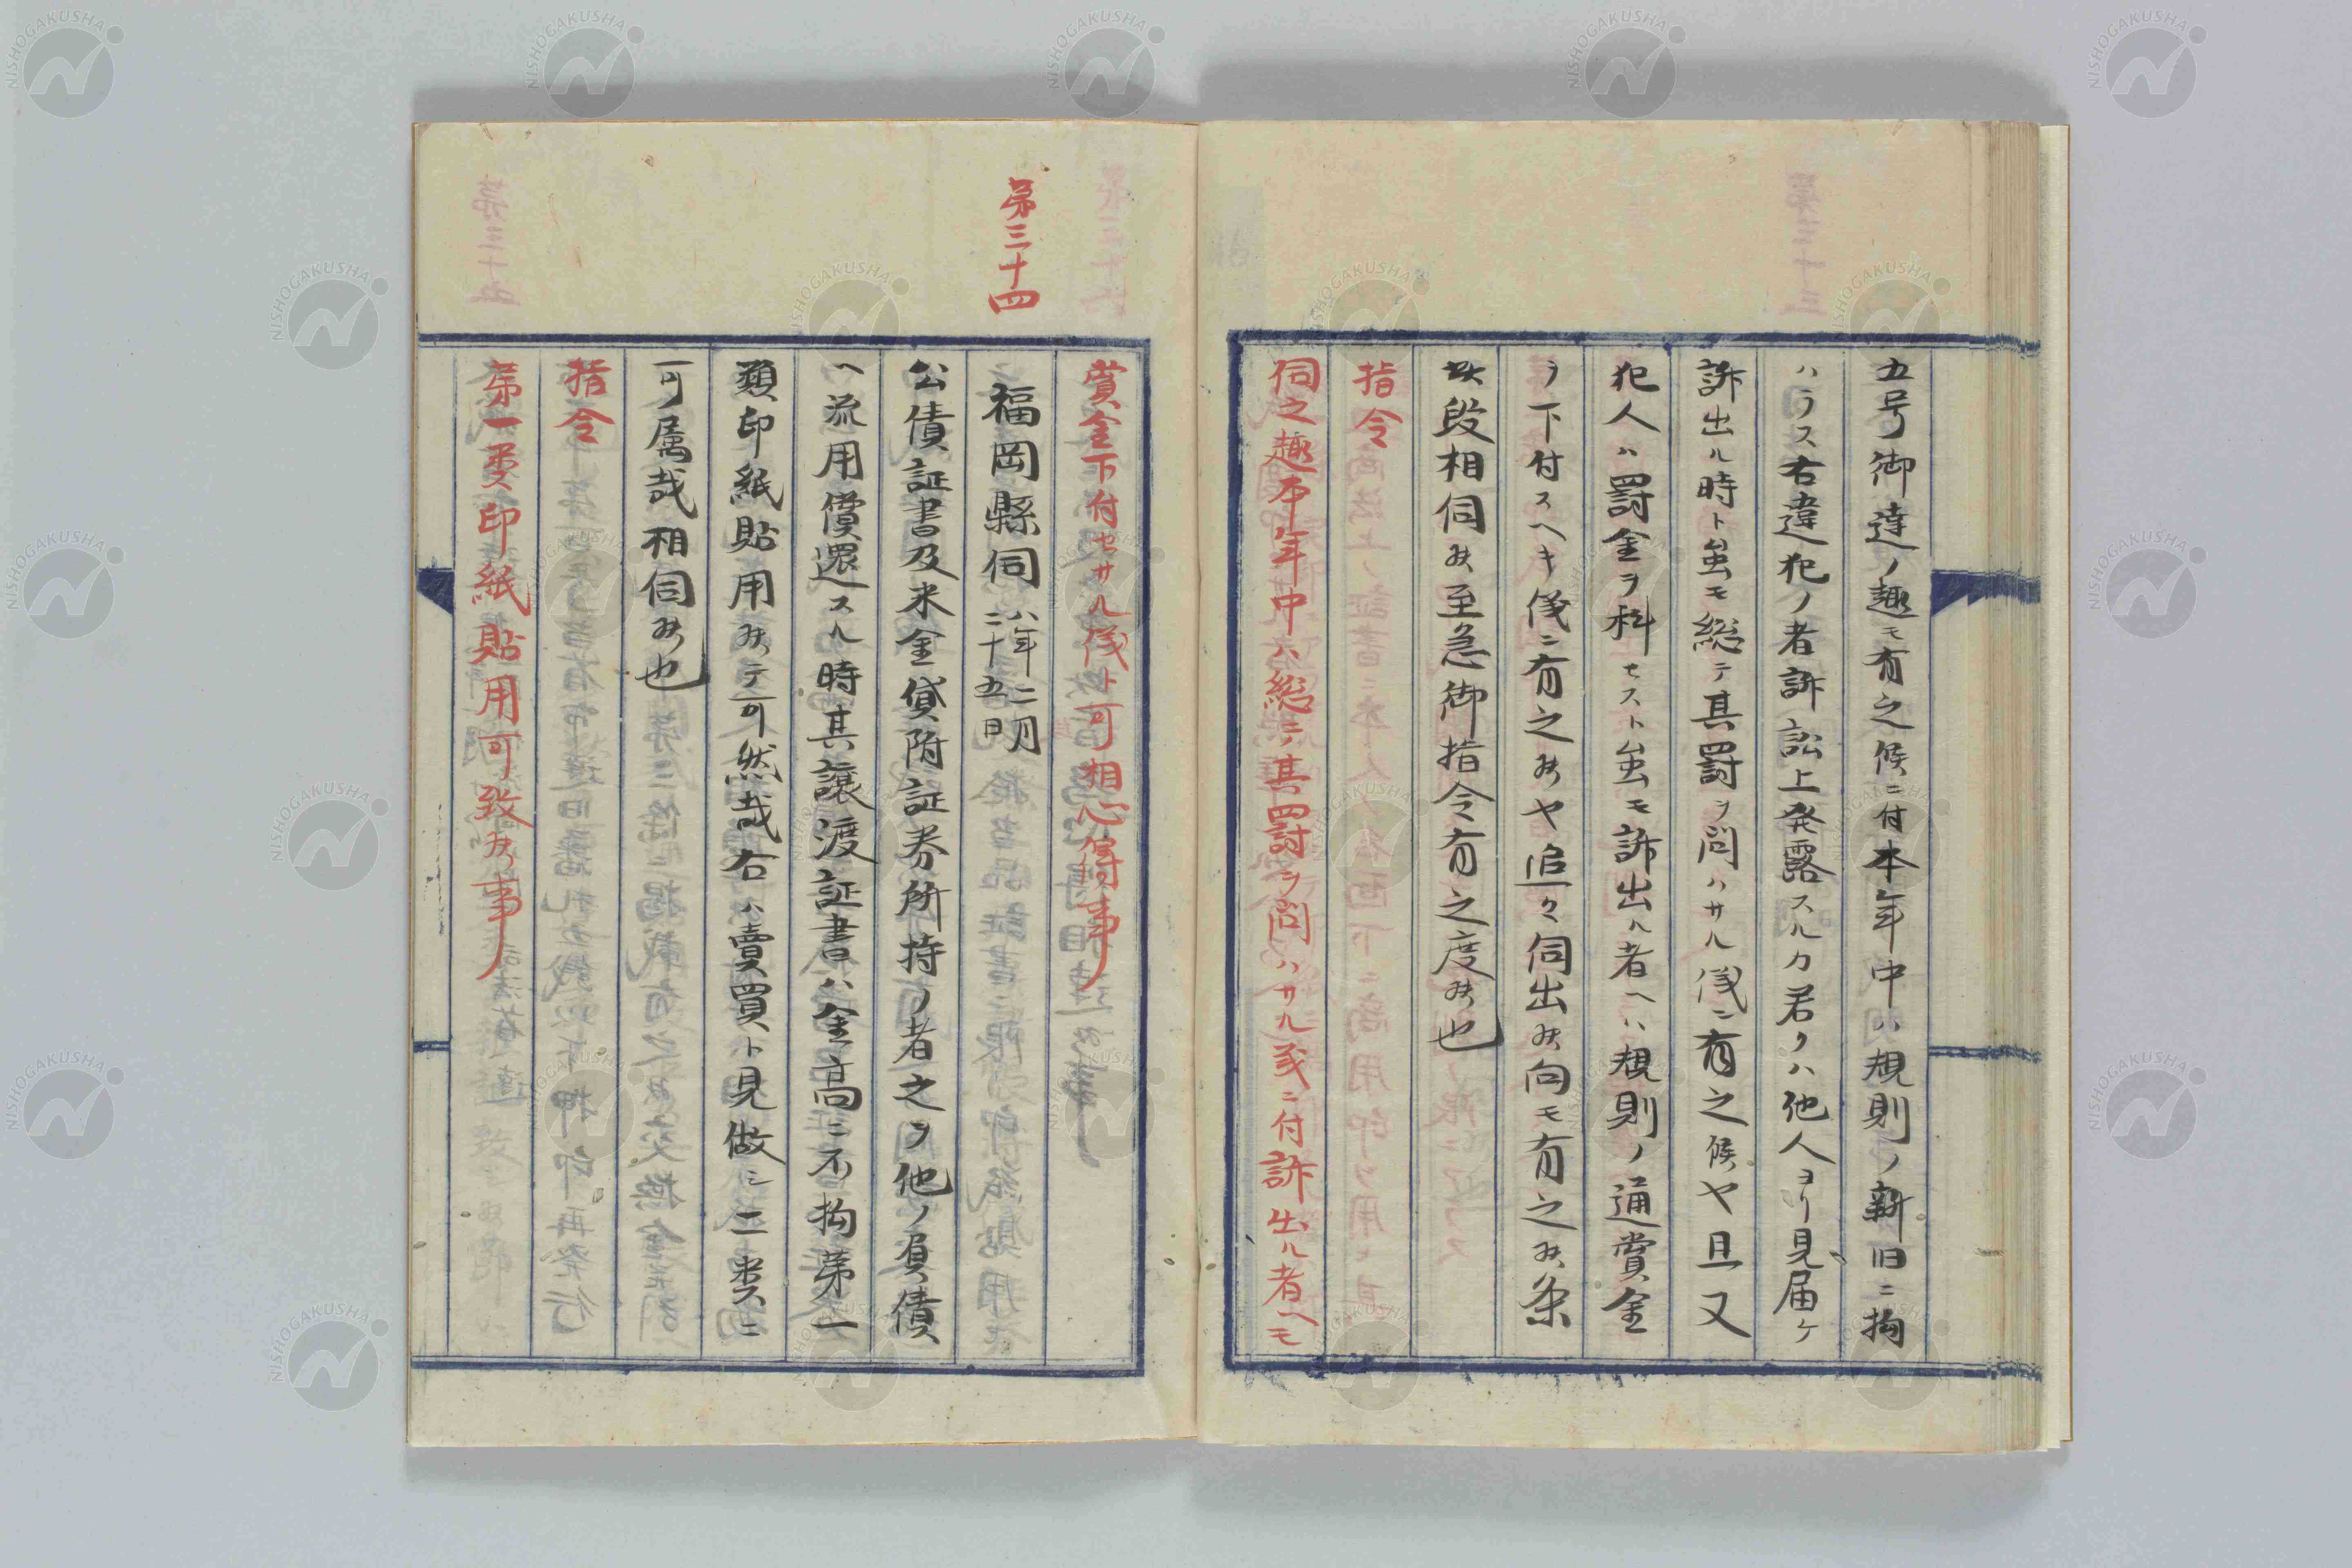 五号御達ノ趣モ有之候ニ付本年中ハ規則ノ新旧ニ拘
ハラス右違犯ノ者訴訟上発露スルカ若クハ他人ヨリ見届ケ
訴出ル時ト虽モ総テ其罰ヲ問ハサル儀ニ有之候ヤ且又
犯人ハ罰金ヲ科セスト虽モ訴出ル者ヘハ規則ノ通賞金
ヲ下付スヘキ儀ニ有之候ヤ追々伺出候向モ有之候条
此段相伺候至急御指令有之度候也
指令
伺之趣本年中ハ総テ其罰ヲ問ハサル義ニ付訴出ル者ヘモ
賞金下付セサル儀ト可相心得事
第三十四
福岡縣伺 八年二月二十五日
公債証書及米金貸附証券所持ノ者之ヲ他ノ負債
ヘ流用償還スル時其譲渡証書ハ金高ニ不拘第一
類印紙貼用候テ可然哉右ハ賣買ト見做シ二类ニ
可属哉相伺候也
指令
第一类印紙貼用可致候事
NISHOGAKUSHA